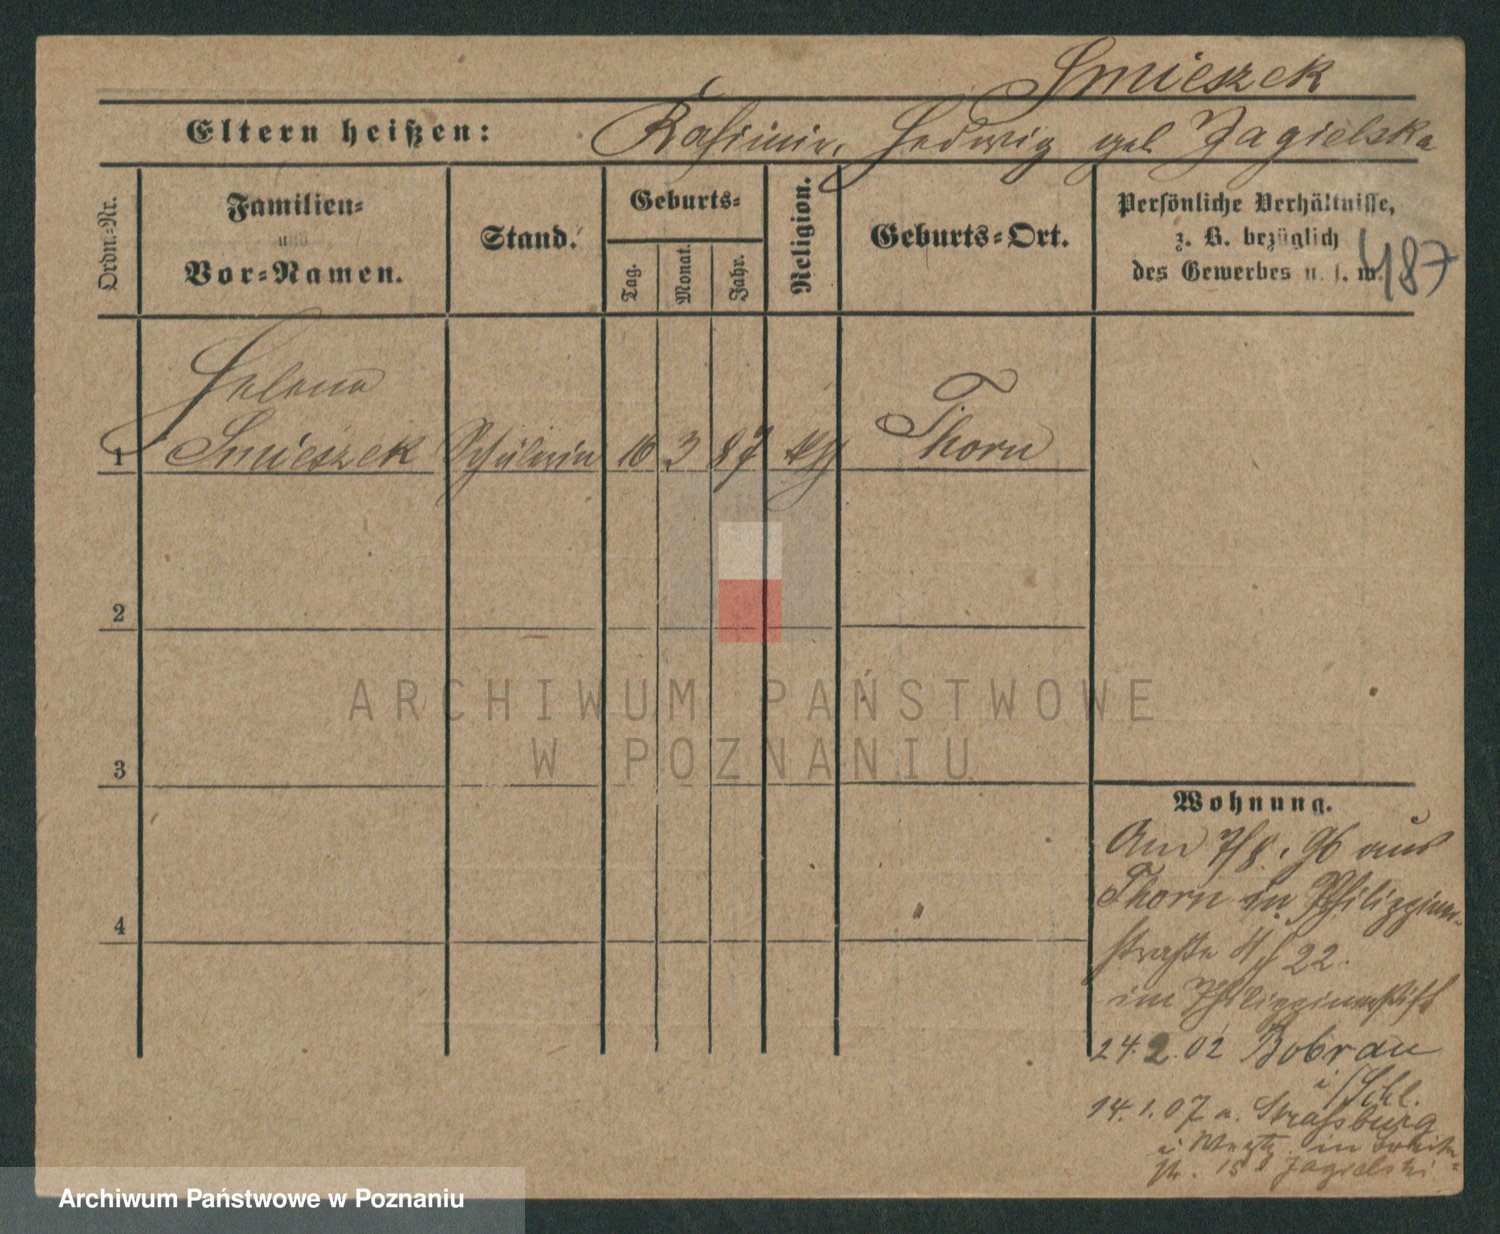 Smieszek
Eltern heißen: Kasimir, Hedwig geb. Jagielska
Ordn.-Nr.
Familien-
und
Vor-Namen.
Stand.
Geburts-
Tag.
Monat.
Jahr.
Religion.
Geburts-Ort.
Persönliche Verhältnisse,
z. B. bezüglich
des Gewerbes u. s. w.
487
Helena
1 Smieszek Schülerin 16 3 87 kth Thorn
2
3
4
ARCHIWUM PAŃSTWOWE
W POZNANIU
Wohnung.
Am 7/8. 96 aus
Thorn in Philippinen-
straße 22.
im Philippinenstift
24.2.02 Bobrau
i/Schl.
14.1.07 a. Strasburg
i Westp. in
15 Jagielski
Archiwum Państwowe w Poznaniu